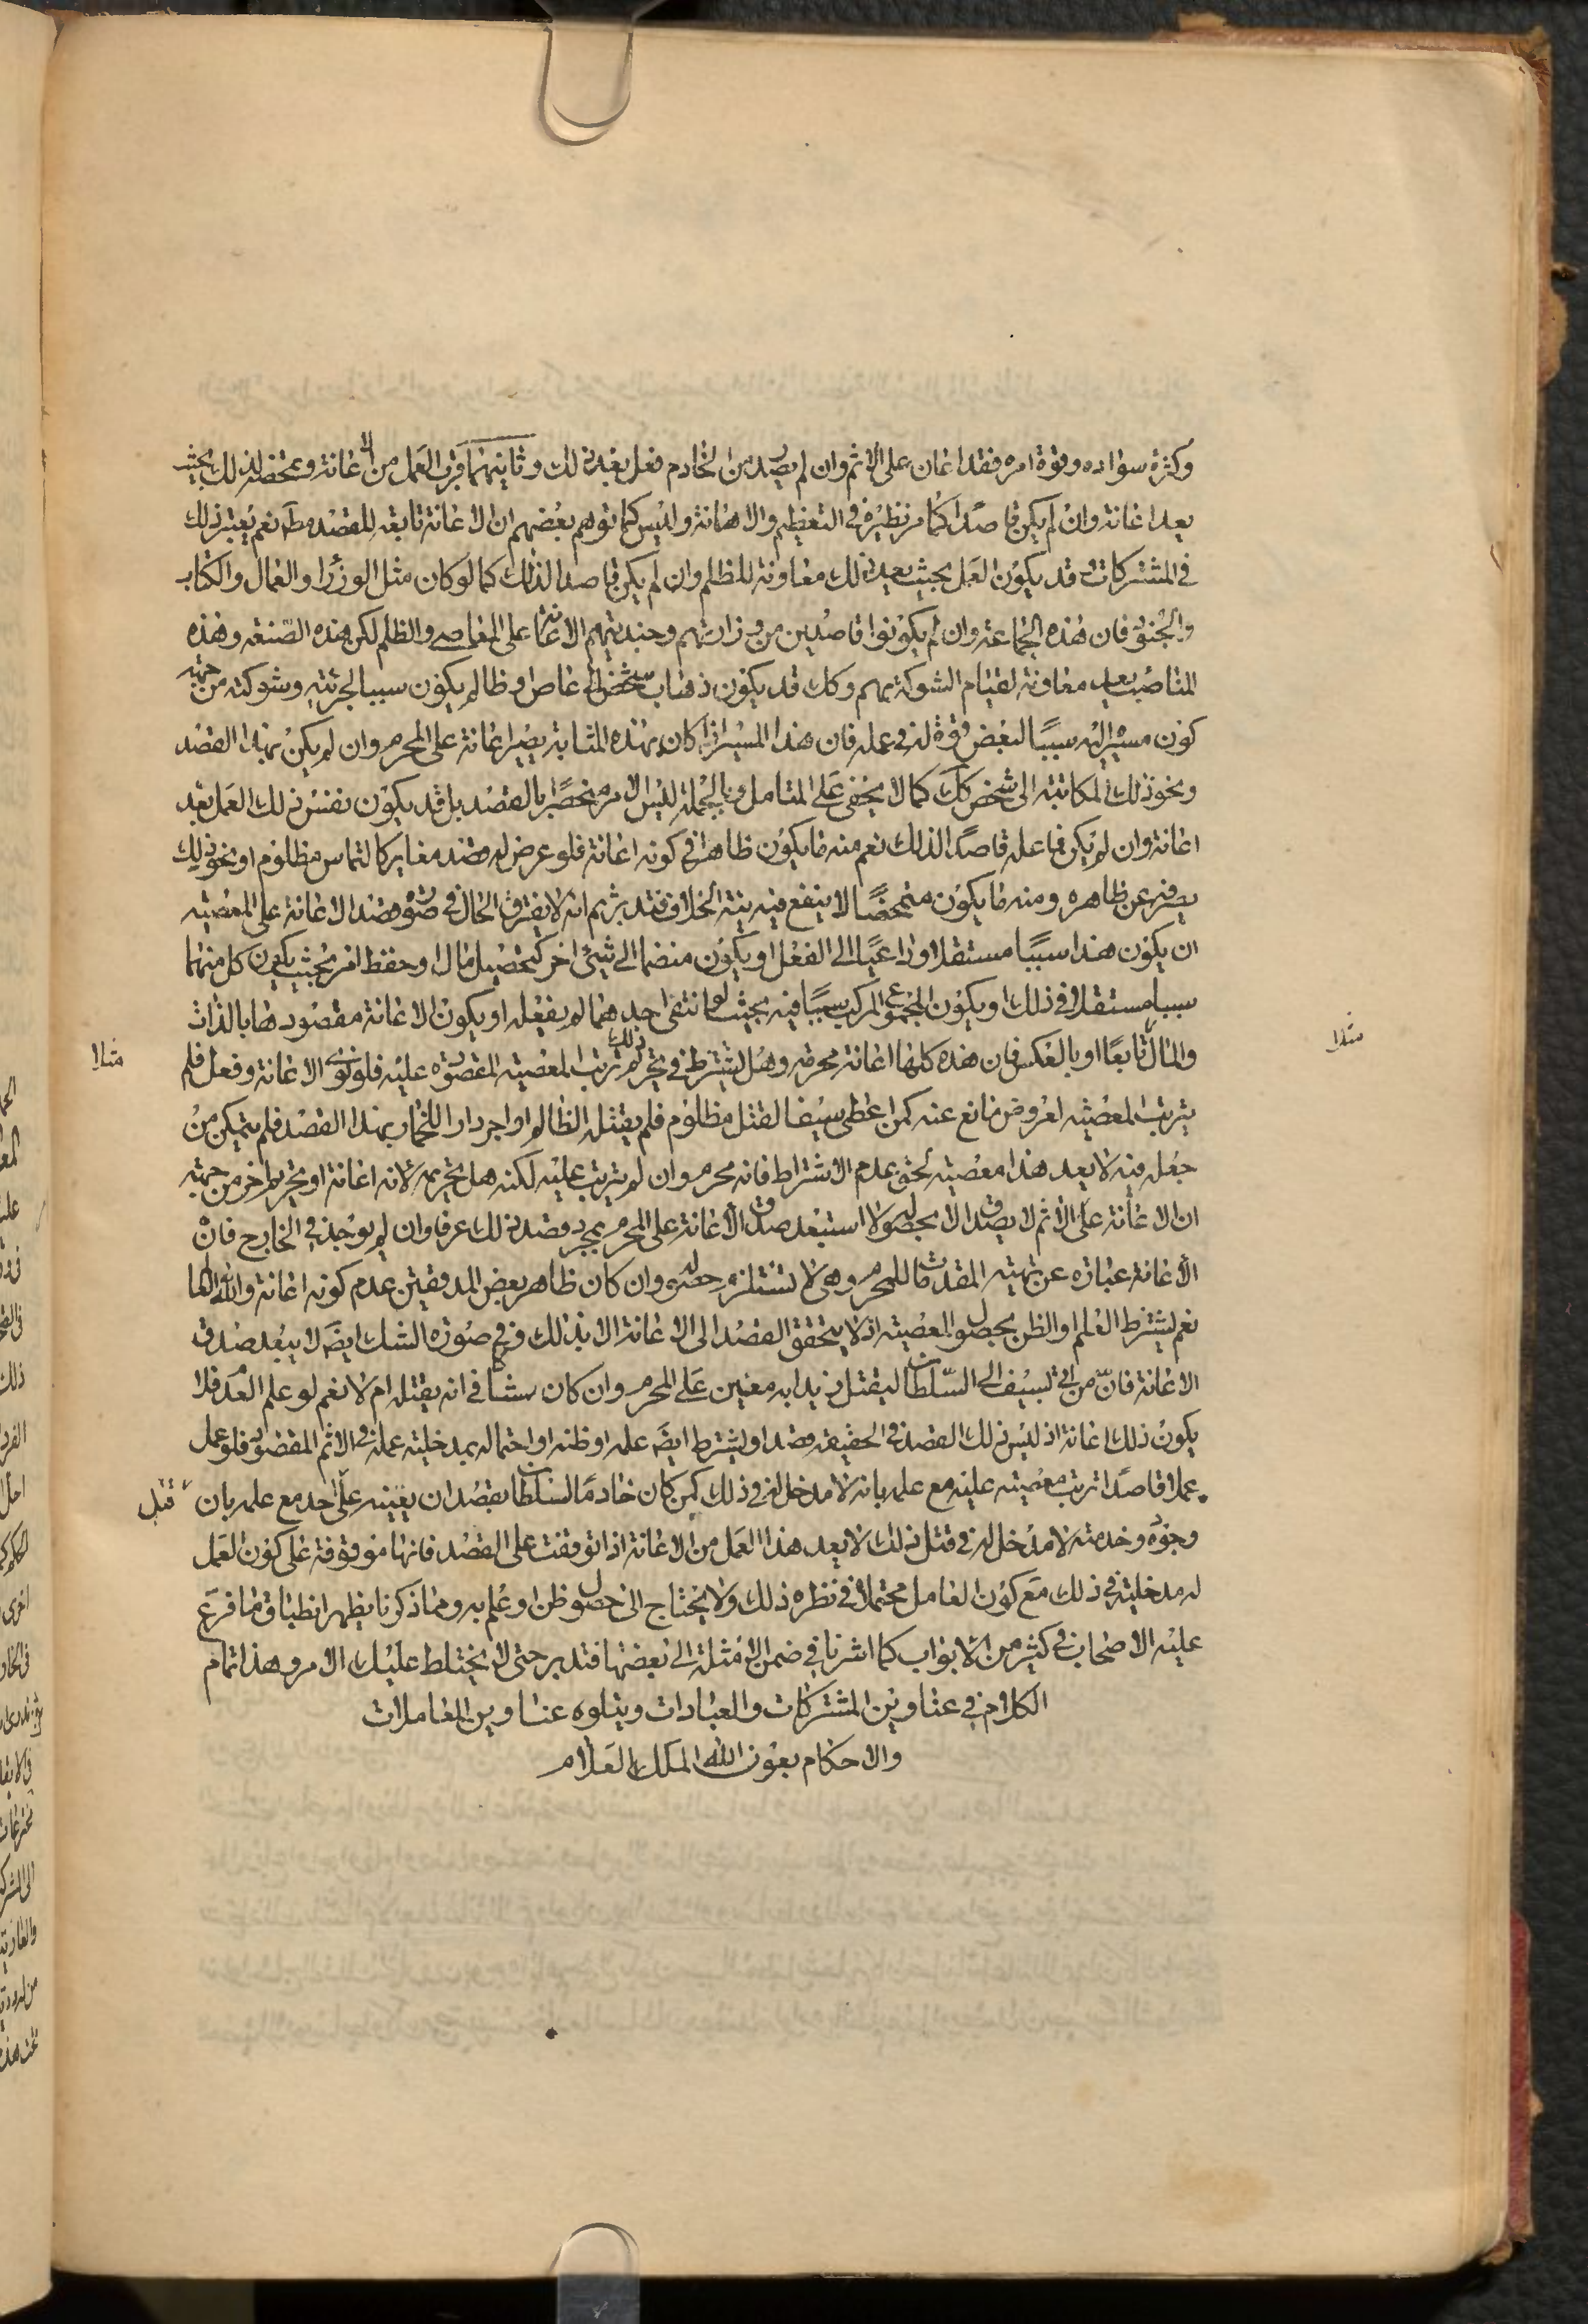 وكثرة سواده وقوة امره فقد اعان على الاثم وان لم يصدر من الخادم فعل بعد ذلك وثانيهما قرب العمل من الاعانة وتمحضه لذلك بحيث
يعد اعانة وان لم يكن قاصدا كما مر نظيره في التعظيم والاهانة وليس كما توهم بعضهم ان الاعانة تابعة للقصد مط نعم يعتبر ذلك
في المشتركات وقد يكون العمل بحيث يعد ذلك معاونة للظلم وان لم يكن قاصدا لذلك كما لو كان مثل الوزراء والعمال والكتاب
والجنود فان هذه الجماعة وان لم يكونوا قاصدين من وزارتهم وجنديتهم الاعانة على المعاصي والظلم لكن هذه الصنعة وهذه
المناصب يعد معاونة لقيام الشوكة بهم وكك قد يكون ذهاب شخص الى عاص وظالم يكون سببا لجرئته وشوكته من جهة
كون مسير اليه سببا لبعض قوة له في عمله فان هذا المسير اذا كان بهذه المثابة يصير اعانة على المحرم وان لم يكن بهذا القصد
ونحو ذلك المكاتبة الى شخص كك كما لا يخفى على المتامل وبالجملة ليس الامر منحصرا بالقصد بل قد يكون نفس ذلك العمل يعد
اعانة وان لم يكن فاعله قاصدا لذلك نعم منه ما يكون ظاهرا في كونه اعانة فلو عرض له قصد مغاير كالتماس مظلوم او نحو ذلك
يصرفه عن ظاهره ومنه ما يكون متمحضا لا ينفع فيه نية الخلاف فتدبر ثم انه لا يفترق الحال في صورة قصد الاعانة على المعصية
ان يكون هذا سببا مستقلا وداعيا الى الفعل او يكون منضما الى شيئ اخر كتحصيل مال او حفظ امر بحيث يكون كل منهما
سببا مستقلا في ذلك او يكون المجموع المركب سببا فيه بحيث لو انتفى احدهما لم يفعله او يكون الاعانة مقصودها بالذات
والمال تابعا او بالعكس فان هذه كلها اعانة محرمة وهل يشترط في تحريم ذلك ترتب المعصية المقصوده عليه فلو نوى الاعانة وفعل فلم
يترتب المعصية لعروض مانع عنه كمن اعطى سيفا لقتل مظلوم فلم يقتله الظالم او اجر دارا للخمار بهذا القصد فلم يتمكن من
جعله فيه لا يعد هذا معصية الحق عدم الاشتراط فانه محرم وان لم يترتب عليه لكنه هل تحريمه لانه اعانة او تحريم اخر من جهة
ان الاعانة على الاثم لا يصدق الا بحصوله ولا استبعد صدق الاعانة على المحرم بمجرد قصد ذلك عرفا وان لم يوجد في الخارج فان
الاعانة عبارة عن تهيئة المقدمات للمحرم وهي لا تستلزم حصوله وان كان ظاهر بعض المدققين عدم كونه اعانة والله العالم
نعم يشترط العلم او الظن بحصول المعصية اذ لا يتحقق القصد الى الاعانة الا بذلك وفي صورة الشك ايضا لا يبعد صدق
الاعانة فان من اتى بسيف الى السلطان ليقتل زيدا به معين على المحرم وان كان شاكا في انه يقتله ام لا نعم لو علم العدم فلا
يكون ذلك اعانة اذ ليس ذلك القصد في الحقيقة قصدا ويشترط ايضا علمه او ظنه او احتماله بمدخلية عمله في الاثم المقصود فلو عمل
عملا قاصدا ترتب معصية عليه مع علمه بانه لا مدخل له في ذلك كمن كان خادما للسلطان بقصد ان يعينه على احد مع علمه بان
وجوده وخدمته لا مدخل له في قتل ذلك لا يعد هذا العمل من الاعانة اذا توقفت على القصد فانها موقوفة على كون العمل
له مدخلية في ذلك مع كون العامل محتملا في نظره ذلك ولا يحتاج الى حصول ظن او علم به ومما ذكرنا يظهر انطباق ما فرع
عليه الاصحاب في كثير من الابواب كما اشرنا في ضمن الامثلة الى بعضها فتدبر حتى لا يختلط عليك الامر وهذا تمام
الكلام في عناوين المشتركات والعبادات ويتلوه عناوين المعاملات
والاحكام بعون الله الملك العلام
مثلا
مثلا
قتل